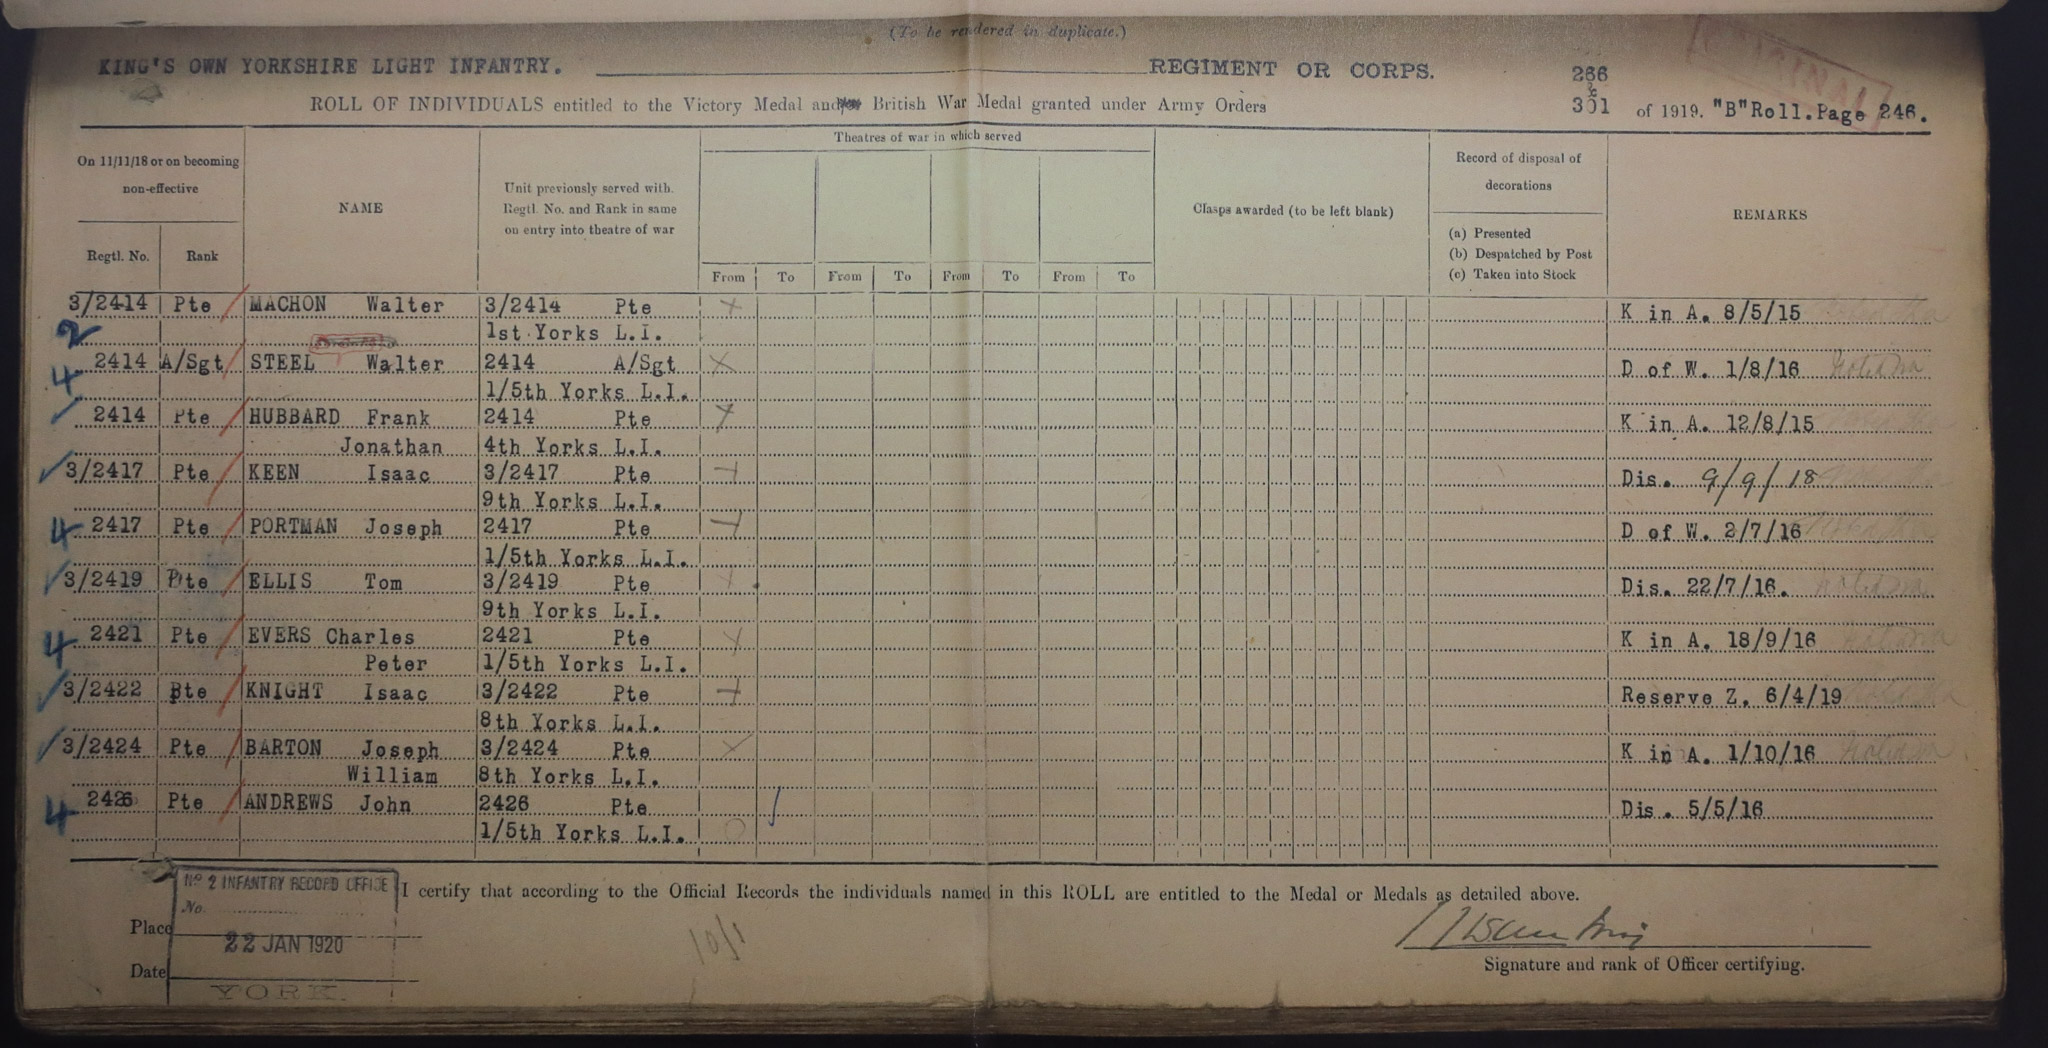 (To be rendered in duplicate.)
KING'S OWN YORKSHIRE LIGHT INFANTRY. REGIMENT OR CORPS. 266
ORIGINAL
ROLL OF INDIVIDUALS entitled to the Victory Medal and British War Medal granted under Army Orders & 301 of 1919. "B"Roll.Page 246.
Theatres of war in which served
On 11/11/18 or on becoming non-effective
NAME
Unit previously served with. Regtl. No. and Rank in same on entry into theatre of war
Clasps awarded (to be left blank)
Record of disposal of decorations
REMARKS
(a) Presented
(b) Despatched by Post
(c) Taken into Stock
Regtl. No. Rank From To From To From To From To
3/2414 Pte MACHON Walter 3/2414 Pte K in A. 8/5/15
2 1st Yorks L.I.
2414 A/Sgt STEEL Walter 2414 A/Sgt D of W. 1/8/16
4 1/5th Yorks L.I.
2414 Pte HUBBARD Frank 2414 Pte K in A. 12/8/15
Jonathan 4th Yorks L.I.
3/2417 Pte KEEN Isaac 3/2417 Pte Dis. 9/9/18
9th Yorks L.I.
4 2417 Pte PORTMAN Joseph 2417 Pte D of W. 2/7/16
1/5th Yorks L.I.
3/2419 Pte ELLIS Tom 3/2419 Pte Dis. 22/7/16.
9th Yorks L.I.
4 2421 Pte EVERS Charles 2421 Pte K in A. 18/9/16
Peter 1/5th Yorks L.I.
3/2422 Pte KNIGHT Isaac 3/2422 Pte Reserve Z. 6/4/19
8th Yorks L.I.
3/2424 Pte BARTON Joseph 3/2424 Pte K in A. 1/10/16
William 8th Yorks L.I.
4 2426 Pte ANDREWS John 2426 Pte Dis. 5/5/16
1/5th Yorks L.I.
No 2 INFANTRY RECORD OFFICE
I certify that according to the Official Records the individuals named in this ROLL are entitled to the Medal or Medals as detailed above.
No.
Place
22 JAN 1920
10/1
Date
YORK.
Signature and rank of Officer certifying.